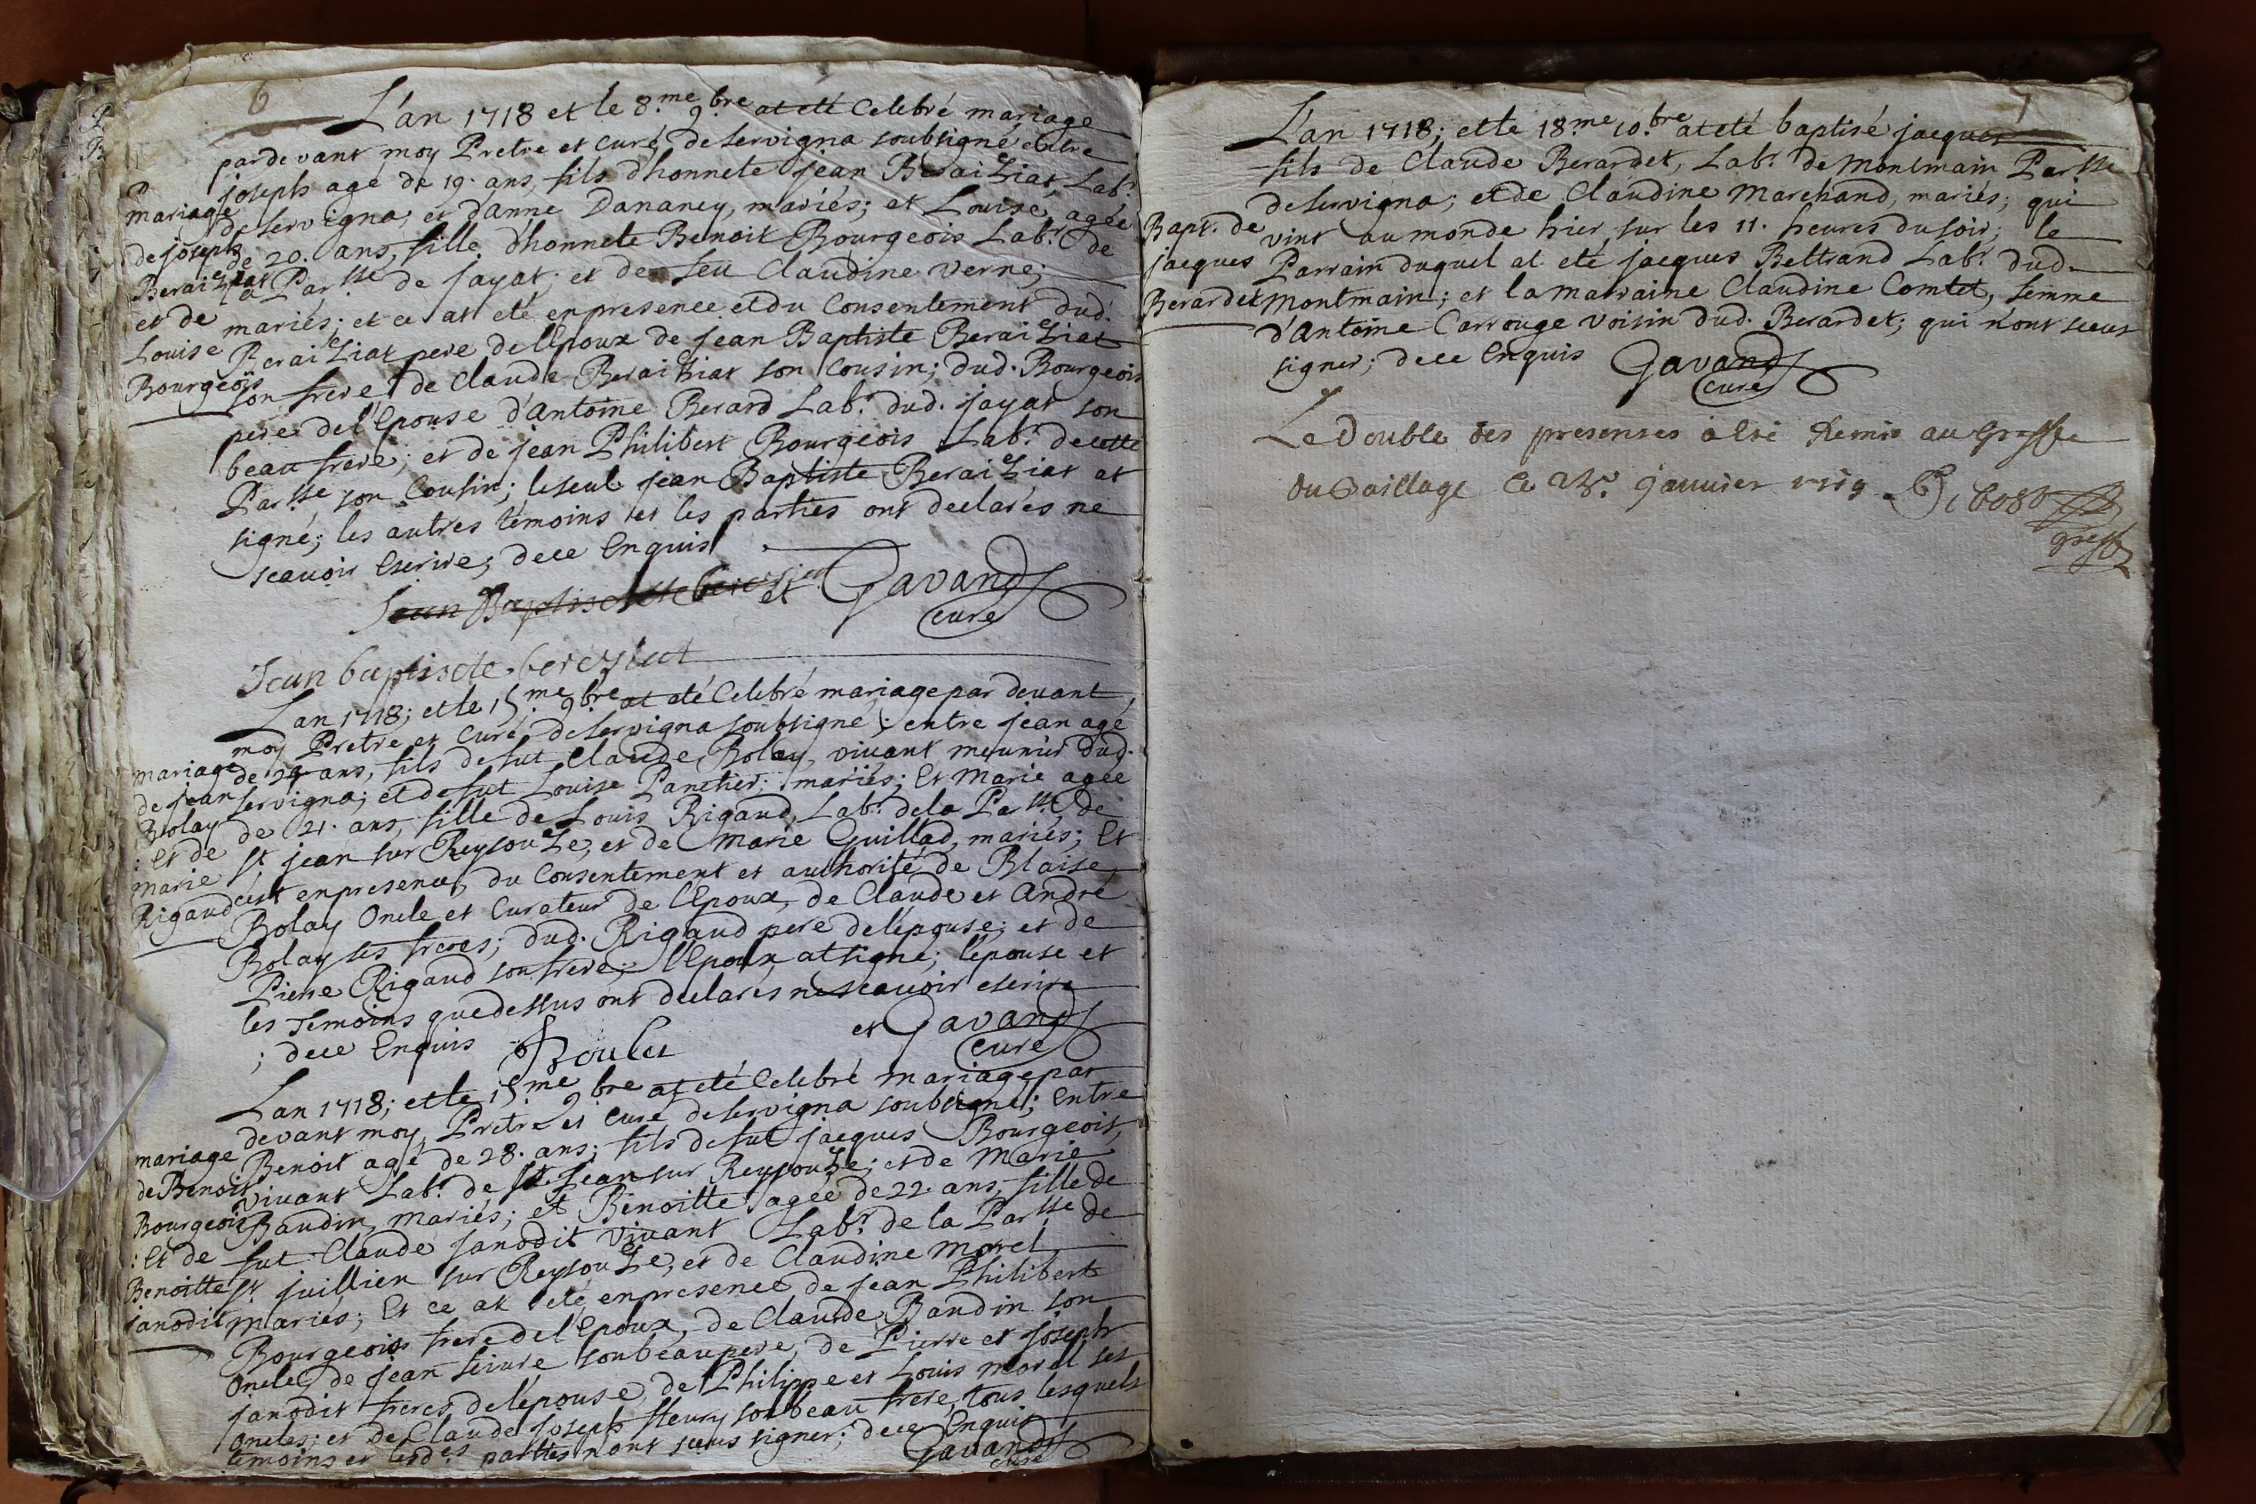 6
L'an 1718 et le 8.me 9.bre at eté Celebré mariage
pardevant moy Pretre et curé de Servigna soubsigné entre
joseph agé de 19. ans, fils d'honnete jean Beraiziat, Lab.r
de Servigna; et d'anne Dananey, mariés; et Louise, agée
de 20. ans, fille d'honnete Benoit Bourgeois Lab.r de
la Par.sse de jayat; et de feu Claudine Verne;
mariés; et ce at eté en presence et du Consentement dud.
Beraiziat pere de l'Epoux de jean Baptiste Beraiziat
son frere, de Claude Beraiziat son Cousin; dud. Bourgeois
pere de l'Epouse d'antoine Berard Lab.r dud. jayat son
beau frere; et de jean Philibert Bourgeois Lab.r de cette
Par.sse son Cousin; le seul jean Baptiste Beraiziat at
signé; les autres temoins et les parties ont declarés ne
scauoir Escrire; de ce Enquis
mariage
de joseph
Beraiziat
et de
Louise
Bourgeois
et Gavand
curé
Jean baptiste bereyziat
L'an 1718; et le 15.me 9.bre at eté Celebré mariage par devant
moy Pretre et Curé de Servigna soubsigné; entre jean agé
de 24 ans, fils de fut Claude Bolay, vivant meunier dud.
Servigna; et de fut Louise Panetier; mariés; Et Marie agée
de 21. ans, fille de Louis Rigaud, Lab.r de la Par.sse de
St jean sur Reysouze, et de Marie Guillad, mariés; Et
c'est en presence, du Consentement et authorité de Blaise
Bolay Oncle et Curateur de l'Epoux, de Claude et André
Bolay ses freres; dud. Rigaud pere de l'épouse; et de
Pierre Rigaud son frere; l'Epoux at signé; l'épouse et
les Temoins que dessus ont declarés ne scauoir escrire
; de ce Enquis
mariage
de jean
Bolay
: et de
Marie
Rigaud
Boulet
et Gavand
curé
L'an 1718; et le 15.me 9.bre at eté Celebré mariage par
devant moy Pretre et curé de Servigna soubsigné; Entre
Benoit agé de 28. ans; fils de fut jacques Bourgeois,
vivant Lab.r de St Jean sur Reysouze; et de Marie
Baudin, mariés; et Benoitte agée de 22. ans, fille de
fut Claude janodit vivant Lab.r de la Par.sse de
St juillien sur Reysouze, et de Claudine Morel
mariés; Et ce at eté en presence de jean Philibert
Bourgeois frere de l'Epoux, de Claude Baudin son
Oncle, de jean son beaupere, de Pierre et joseph
janodit freres de l'épouse, de Philippe et Louis Morel ses
oncles; et de Claude joseph fleury son beau frere, tous lesquels
temoins et lesd.es parties n'ont sceus signer; de ce Enquis
mariage
de Benoit
Bourgeois
: et de
Benoitte
janodit
Gavand
curé
7
L'an 1718; et le 18.me 10.bre at eté baptisé jacques
fils de Claude Berardet, Lab.r de Montmain Par.sse
de Servigna; et de Claudine Marchand, mariés; qui
vint au monde hier, sur les 11. heures du soir; le
Parrain duquel at eté jacques Beltrand Lab.r dud.
Montmain; et la marraine Claudine Comtet, femme
d'Antoine Carrouge voisin dud. Berardet; qui n'ont sceus
signer; de ce Enquis
Bapt. de
jacques
Berardet
Gavand
curé
Le Double des presenses a Eté Remis au Greffe
du Baillage Ce 23.e janvier 1719
greff